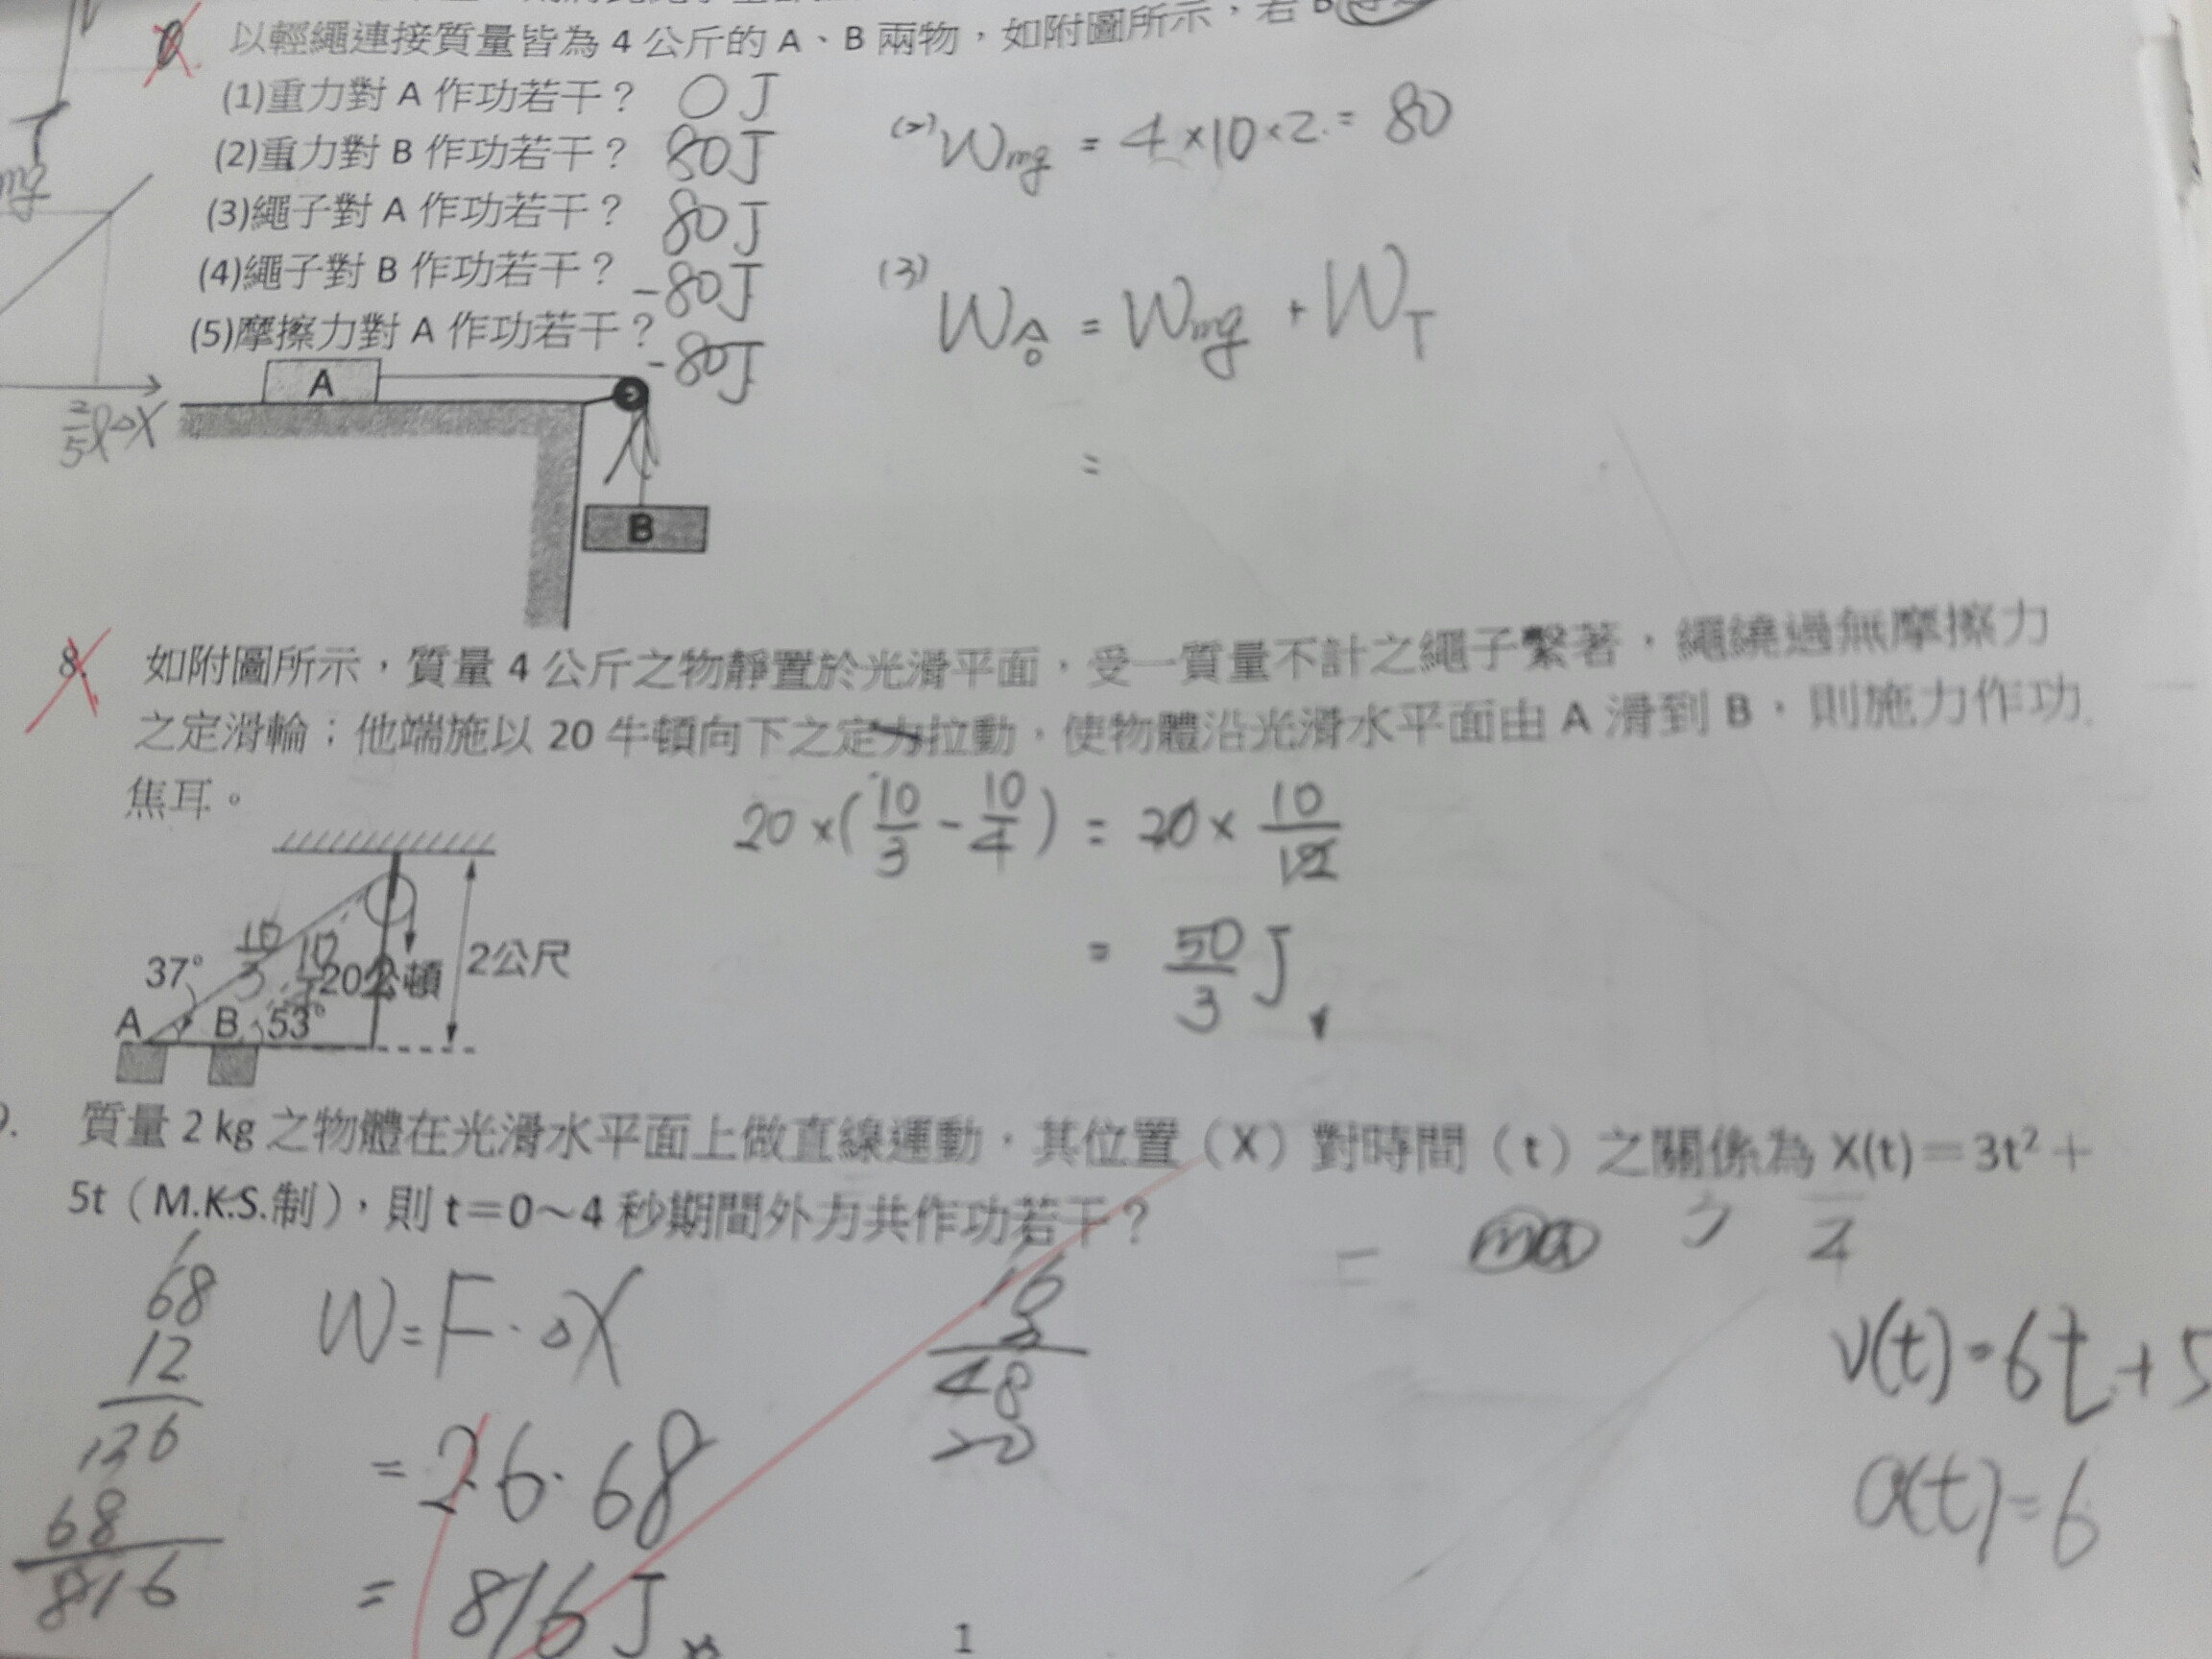 以輕繩連接質量皆為 4 公斤的 A、B 兩物,如附圖所示,若 B
(1)重力對 A 作功若干? 0 J
(2)重力對 B 作功若干? 80J
(2) Wmg = 4×10×2 = 80
(3)繩子對 A 作功若干? 80J
(4)繩子對 B 作功若干? -80J
(5)摩擦力對 A 作功若干? -80J
(3) W合 = Wmg + WT
=
T
mg
A
B
8. 如附圖所示,質量 4 公斤之物靜置於光滑平面,受一質量不計之繩子繫著,繩繞過無摩擦力
之定滑輪;他端施以 20 牛頓向下之定力拉動,使物體沿光滑水平面由 A 滑到 B,則施力作功
焦耳。
20×(10/3 - 10/4) = 20× 10/12
= 50/3 J
10/3
37°
20公頓
2公尺
A B 53°
9. 質量 2 kg 之物體在光滑水平面上做直線運動,其位置(X)對時間(t)之關係為 X(t)=3t²+
5t(M.K.S.制),則 t=0~4 秒期間外力共作功若干?
68
12
136
68
816
W = F·ΔX
= 2·6·68
= 816 J
16
3
48
20
v(t)=6t+5
a(t)=6
1